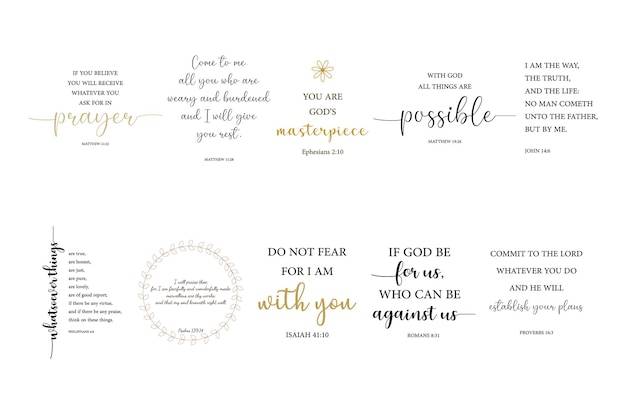 IF YOU BELIEVE
YOU WILL RECEIVE
WHATEVER YOU
ASK FOR IN
prayer
MATTHEW 21:22
Come to me
all you who are
weary and burdened
and I will give
you rest.
MATTHEW 11:28
YOU ARE
GOD'S
masterpiece
Ephesians 2:10
WITH GOD
ALL THINGS ARE
possible
MATTHEW 19:26
I AM THE WAY,
THE TRUTH,
AND THE LIFE:
NO MAN COMETH
UNTO THE FATHER,
BUT BY ME.
JOHN 14:6
whatsoever things
are true,
are honest,
are just,
are pure,
are lovely,
are of good report,
if there be any virtue,
and if there be any praise,
think on these things.
PHILIPPIANS 4:8
I will praise thee;
for I am fearfully and wonderfully made:
marvellous are thy works;
and that my soul knoweth right well.
Psalms 139:14
DO NOT FEAR
FOR I AM
with you
ISAIAH 41:10
IF GOD BE
for us,
WHO CAN BE
against us
ROMANS 8:31
COMMIT TO THE LORD
WHATEVER YOU DO
AND HE WILL
establish your plans
PROVERBS 16:3